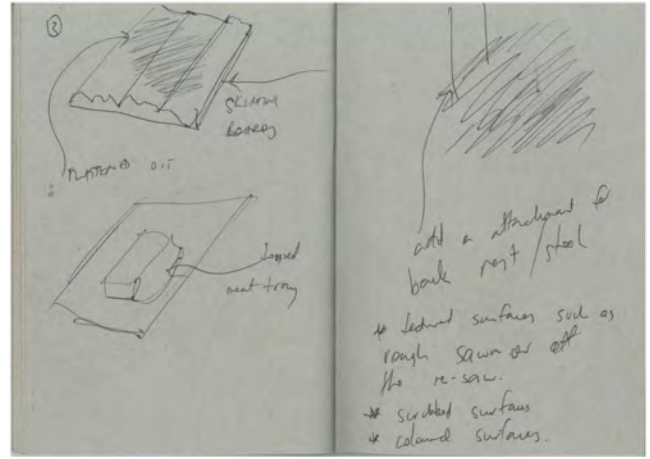 ②
SKIRTING
BOARDS
FLATTENED OUT
meat tray
add a attachment for
back rest / stool
* textured surfaces such as
rough sawn or off
the re-saw.
* scrubbed surfaces
* coloured surfaces.